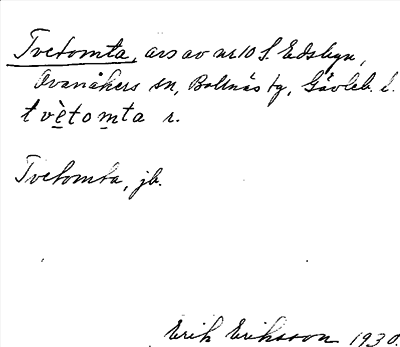 Tvetomta, ars av nr 10 S. Edsbyn,
Ovanåkers sn, Bollnäs tg, Gävleb. l.
tvètomta r.
Tvetomta, jb.
Erik Eriksson 1930.